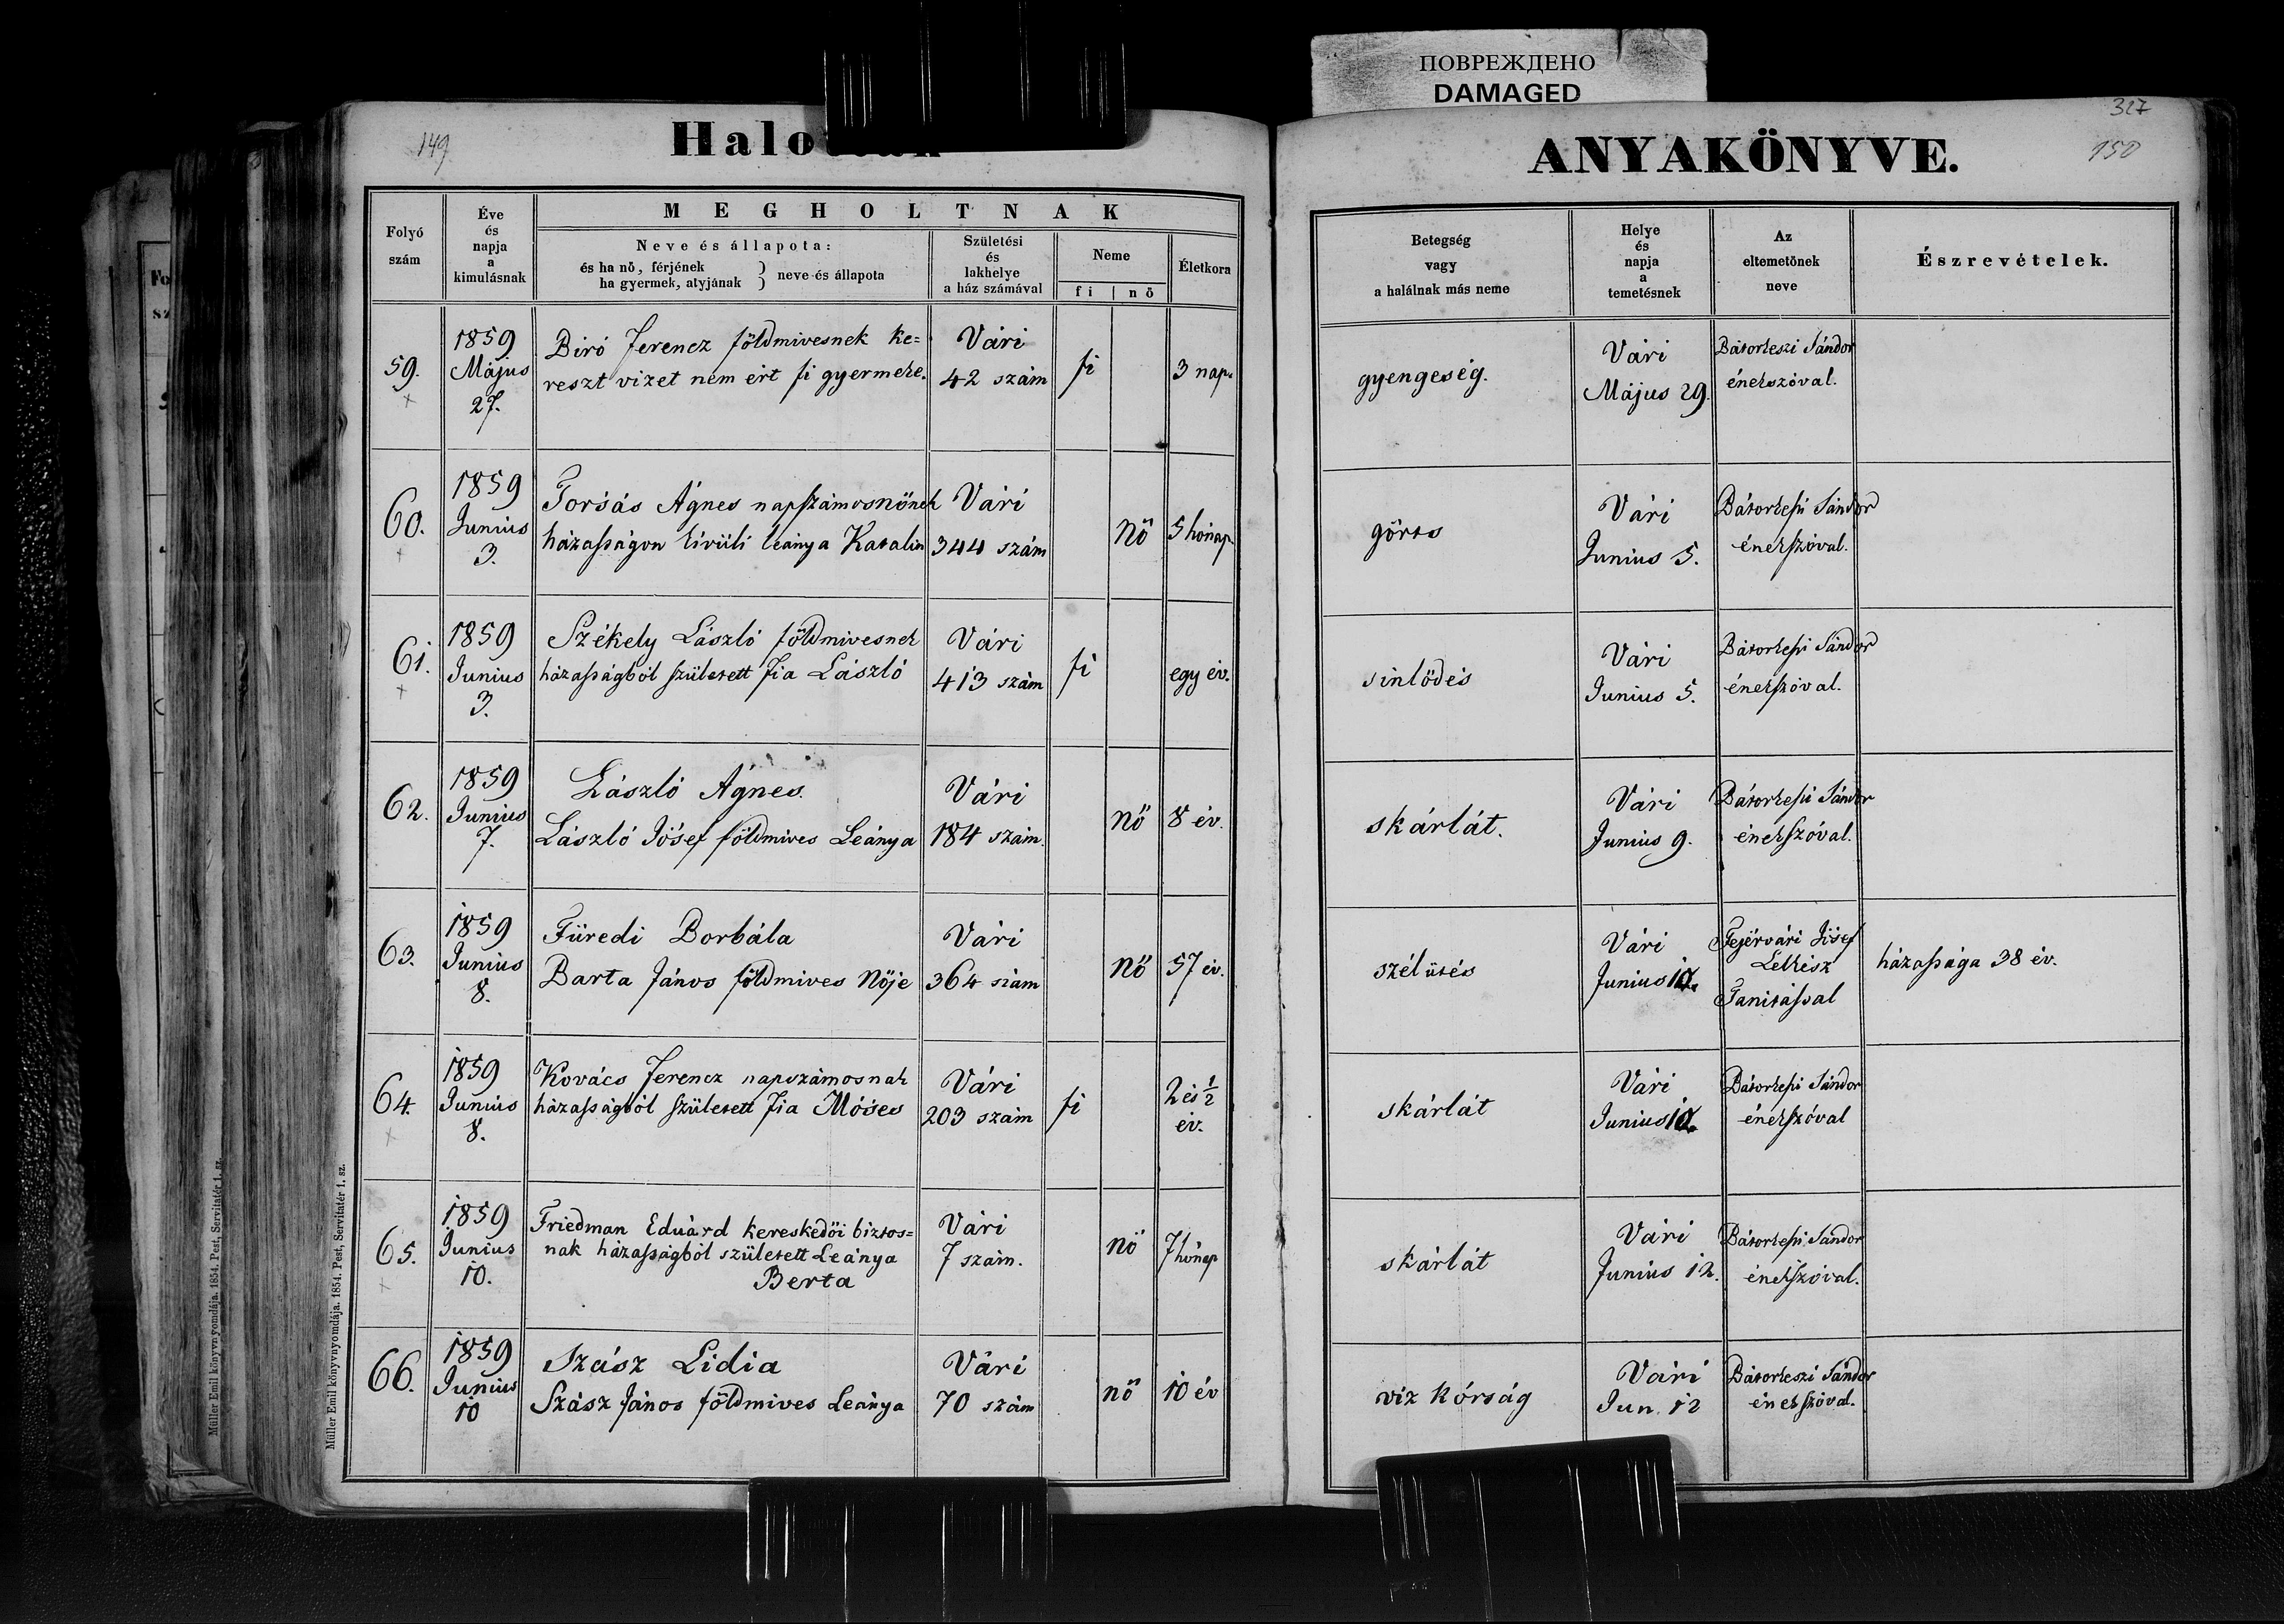 ПОВРЕЖДЕНО
DAMAGED
149
ANYAKÖNYVE.
327
150
Folyó
szám
Éve
és
napja
a
kimulásnak
MEGHOLTNAK
Neve és állapota:
és ha nő, férjének
ha gyermek, atyjának
neve és állapota
Születési
és
lakhelye
a ház számával
Neme
fi | nő
Életkora
Betegség
vagy
a halálnak más neme
Helye
és
napja
a
temetésnek
Az
eltemetőnek
neve
Észrevételek.
59.
1859
Május
27.
Biró Ferencz földmivesnek ke=
reszt vizet nem ért fi gyermeke.
Vári
42 szám
fi
3 nap.
gyengeség.
Vári
Május 29.
Bátorkeszi Sándor
énekszóval.
60.
1859
Junius
3.
Forsás Ágnes napszámosnőnek
házasságon kivüli leánya Katalin
Vári
344 szám
nő
5 hónap.
görts
Vári
Junius 5.
Bátorkeszi Sándor
énekszóval.
61.
1859
Junius
3.
Székely László földmivesnek
házasságból született fia László
Vári
413 szám
fi
egy év.
sinlődés
Vári
Junius 5.
Bátorkeszi Sándor
énekszóval.
62.
1859
Junius
7.
László Ágnes.
László Jósef földmives Leánya
Vári
184 szám.
nő
8 év.
skárlát.
Vári
Junius 9.
Bátorkeszi Sándor
énekszóval.
63.
1859
Junius
8.
Füredi Borbála
Barta János földmives Nője
Vári
364 szám
nő
57 év.
szélütés
Vári
Junius 10.
Fejérvári Jósef
Lelkész
Tanitással
házassága 38 év.
64.
1859
Junius
8.
Kovács Ferencz napszámosnak
házasságból született fia Móses
Vári
203 szám
fi
2 és 1/2
év.
skárlát
Vári
Junius 10.
Bátorkeszi Sándor
énekszóval
65.
1859
Junius
10.
Friedman Eduárd kereskedői biztos=
nak házasságból született Leánya
Berta
Vári
7 szám.
nő
7 hónap
skárlát
Vári
Junius 12.
Bátorkeszi Sándor
énekszóval.
66.
1859
Junius
10
Szász Lidia
Szász János földmives Leánya
Vári
70 szám
nő
10 év
viz kórság
Vári
Jun. 12
Bátorkeszi Sándor
énekszóval.
Müller Emil könyvnyomdája. 1854. Pest, Servitatér 1. sz.
Müller Emil könyvnyomdája. 1854. Pest, Servitatér 1. sz.